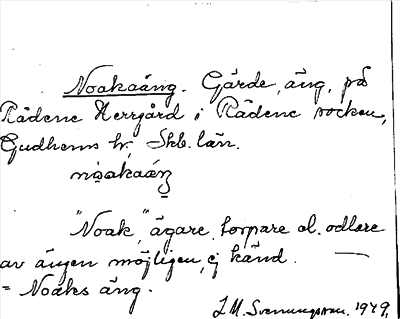 Noakaäng. Gärde, äng, på
Rådene Herrgård i Rådene socken,
Gudhems hr, Skb. län.
noakaäŋ
"Noak", ägare, torpare el. odlare
av ängen möjligen, ej känd. —
= Noaks äng.
J.M. Svenungsson. 1949.